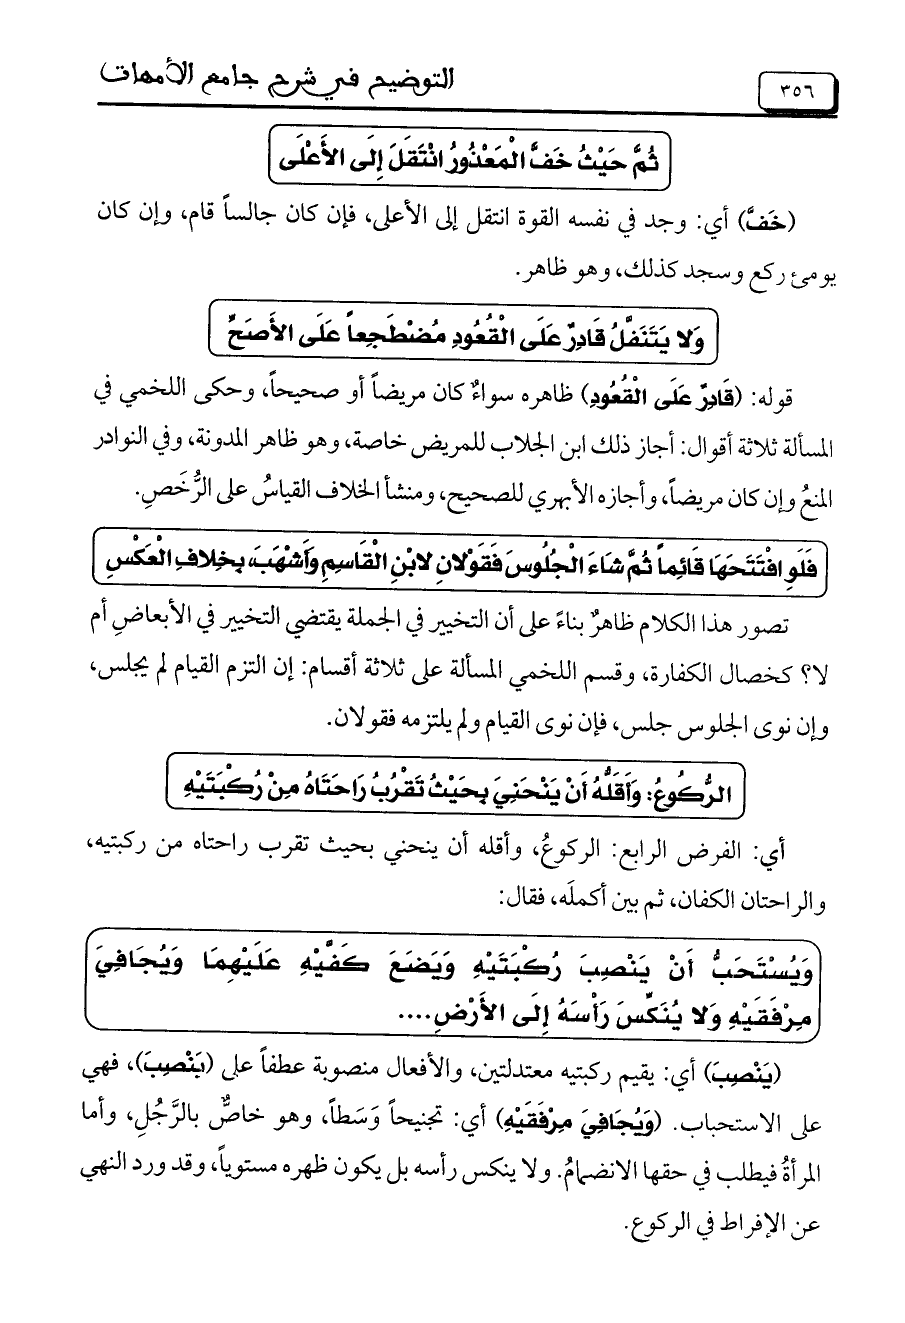 ٣٥٦ التوضيح في شرح جامع الأمهات
ثُمَّ حَيْثُ خَفَّ الْمَعْذُورُ انْتَقَلَ إِلَى الأَعْلَى
(خَفَّ) أي: وجد في نفسه القوة انتقل إلى الأعلى، فإن كان جالساً قام، وإن كان
يومئ ركع وسجد كذلك، وهو ظاهر.
وَلا يَتَنَفَّلُ قَادِرٌ عَلَى الْقُعُودِ مُضْطَجِعاً عَلَى الأَصَحِّ
قوله: (قَادِرٌ عَلَى الْقُعُودِ) ظاهره سواءٌ كان مريضاً أو صحيحاً، وحكى اللخمي في
المسألة ثلاثة أقوال: أجاز ذلك ابن الجلاب للمريض خاصة، وهو ظاهر المدونة، وفي النوادر
المنعُ وإن كان مريضاً، وأجازه الأبهري للصحيح، ومنشأ الخلاف القياسُ على الرُّخَصِ.
فَلَوِ افْتَتَحَهَا قَائِماً ثُمَّ شَاءَ الْجُلُوسَ فَقَوْلانِ لابْنِ الْقَاسِمِ وَأَشْهَبَ، بِخِلافِ الْعَكْسِ
تصور هذا الكلام ظاهرٌ بناءً على أن التخيير في الجملة يقتضي التخيير في الأبعاضِ أم
لا؟ كخصال الكفارة، وقسم اللخمي المسألة على ثلاثة أقسام: إن التزم القيام لم يجلس،
وإن نوى الجلوس جلس، فإن نوى القيام ولم يلتزمه فقولان.
الرُّكُوعُ: وَأَقَلُّهُ أَنْ يَنْحَنِيَ بِحَيْثُ تَقْرُبُ رَاحَتَاهُ مِنْ رُكْبَتَيْهِ
أي: الفرض الرابع: الركوعُ، وأقله أن ينحني بحيث تقرب راحتاه من ركبتيه،
والراحتان الكفان، ثم بين أكملَه، فقال:
وَيُسْتَحَبُّ أَنْ يَنْصِبَ رُكْبَتَيْهِ وَيَضَعَ كَفَّيْهِ عَلَيْهِمَا وَيُجَافِيَ
مِرْفَقَيْهِ وَلا يُنَكِّسَ رَأْسَهُ إِلَى الأَرْضِ....
(يَنْصِبَ) أي: يقيم ركبتيه معتدلتين، والأفعال منصوبة عطفاً على (يَنْصِبَ)، فهي
على الاستحباب. (وَيُجَافِيَ مِرْفَقَيْهِ) أي: تجنيحاً وَسَطاً، وهو خاصٌّ بالرَّجُلِ، وأما
المرأةُ فيطلب في حقها الانضمامُ. ولا ينكس رأسه بل يكون ظهره مستوياً، وقد ورد النهي
عن الإفراط في الركوع.